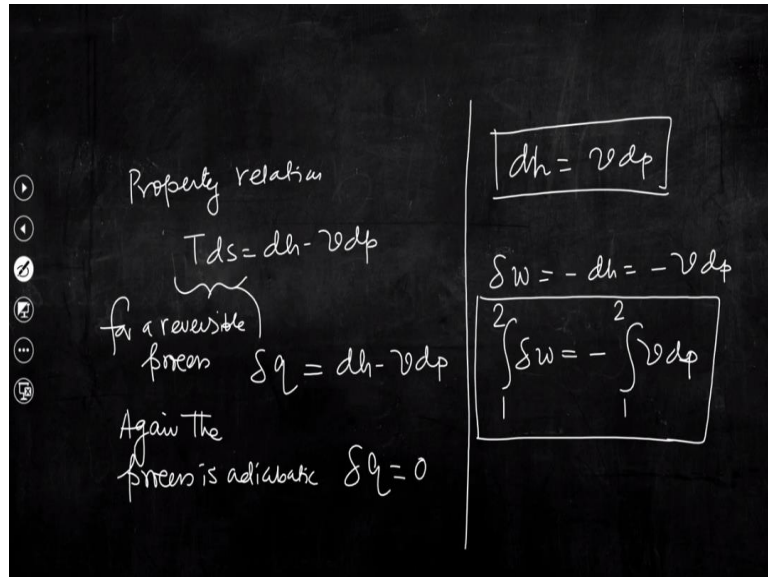 Property relation
Tds = dh - vdp
for a reversible
process δq = dh - vdp
Again the
process is adiabatic δq = 0
dh = vdp
δw = - dh = - vdp
∫₁² δw = - ∫₁² vdp